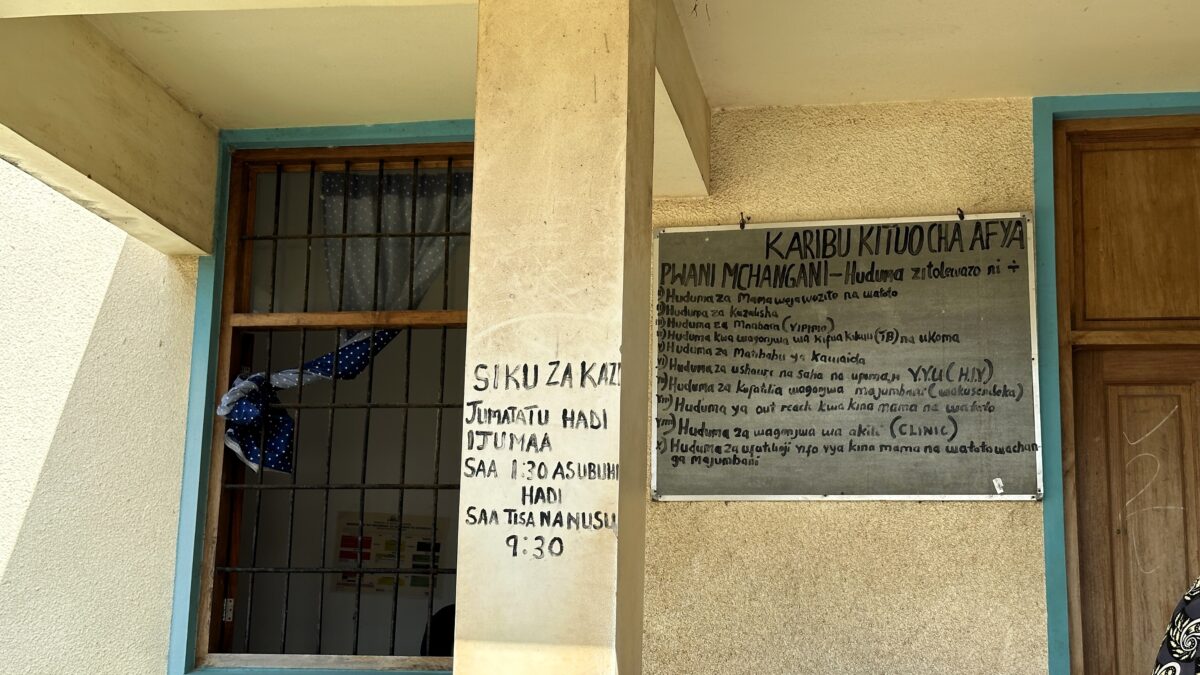 SIKU ZA KAZI
JUMATATU HADI
IJUMAA
SAA 1:30 ASUBUHI
HADI
SAA TISA NA NUSU
9:30
KARIBU KITUO CHA AFYA
PWANI MCHANGANI - Huduma zitolewazo ni ÷
i) Huduma za Mama wajawazito na watoto
ii) Huduma za Kuzalisha
iii) Huduma za Maabara (VIPIMO)
iv) Huduma kwa wagonjwa wa kifua kikuu (TB) na ukoma
v) Huduma za Matibabu ya Kawaida
vi) Huduma za ushauri na saha na upimaji V.V.U (H.I.V)
Huduma za Kufatilia wagonjwa majumbani (
viii) Huduma ya out reach kwa kina mama na watoto
viiii) Huduma za wagonjwa wa akili (CLINIC)
x) Huduma za ufatiliaji vifo vya kina mama na watoto wachan-
ga majumbani